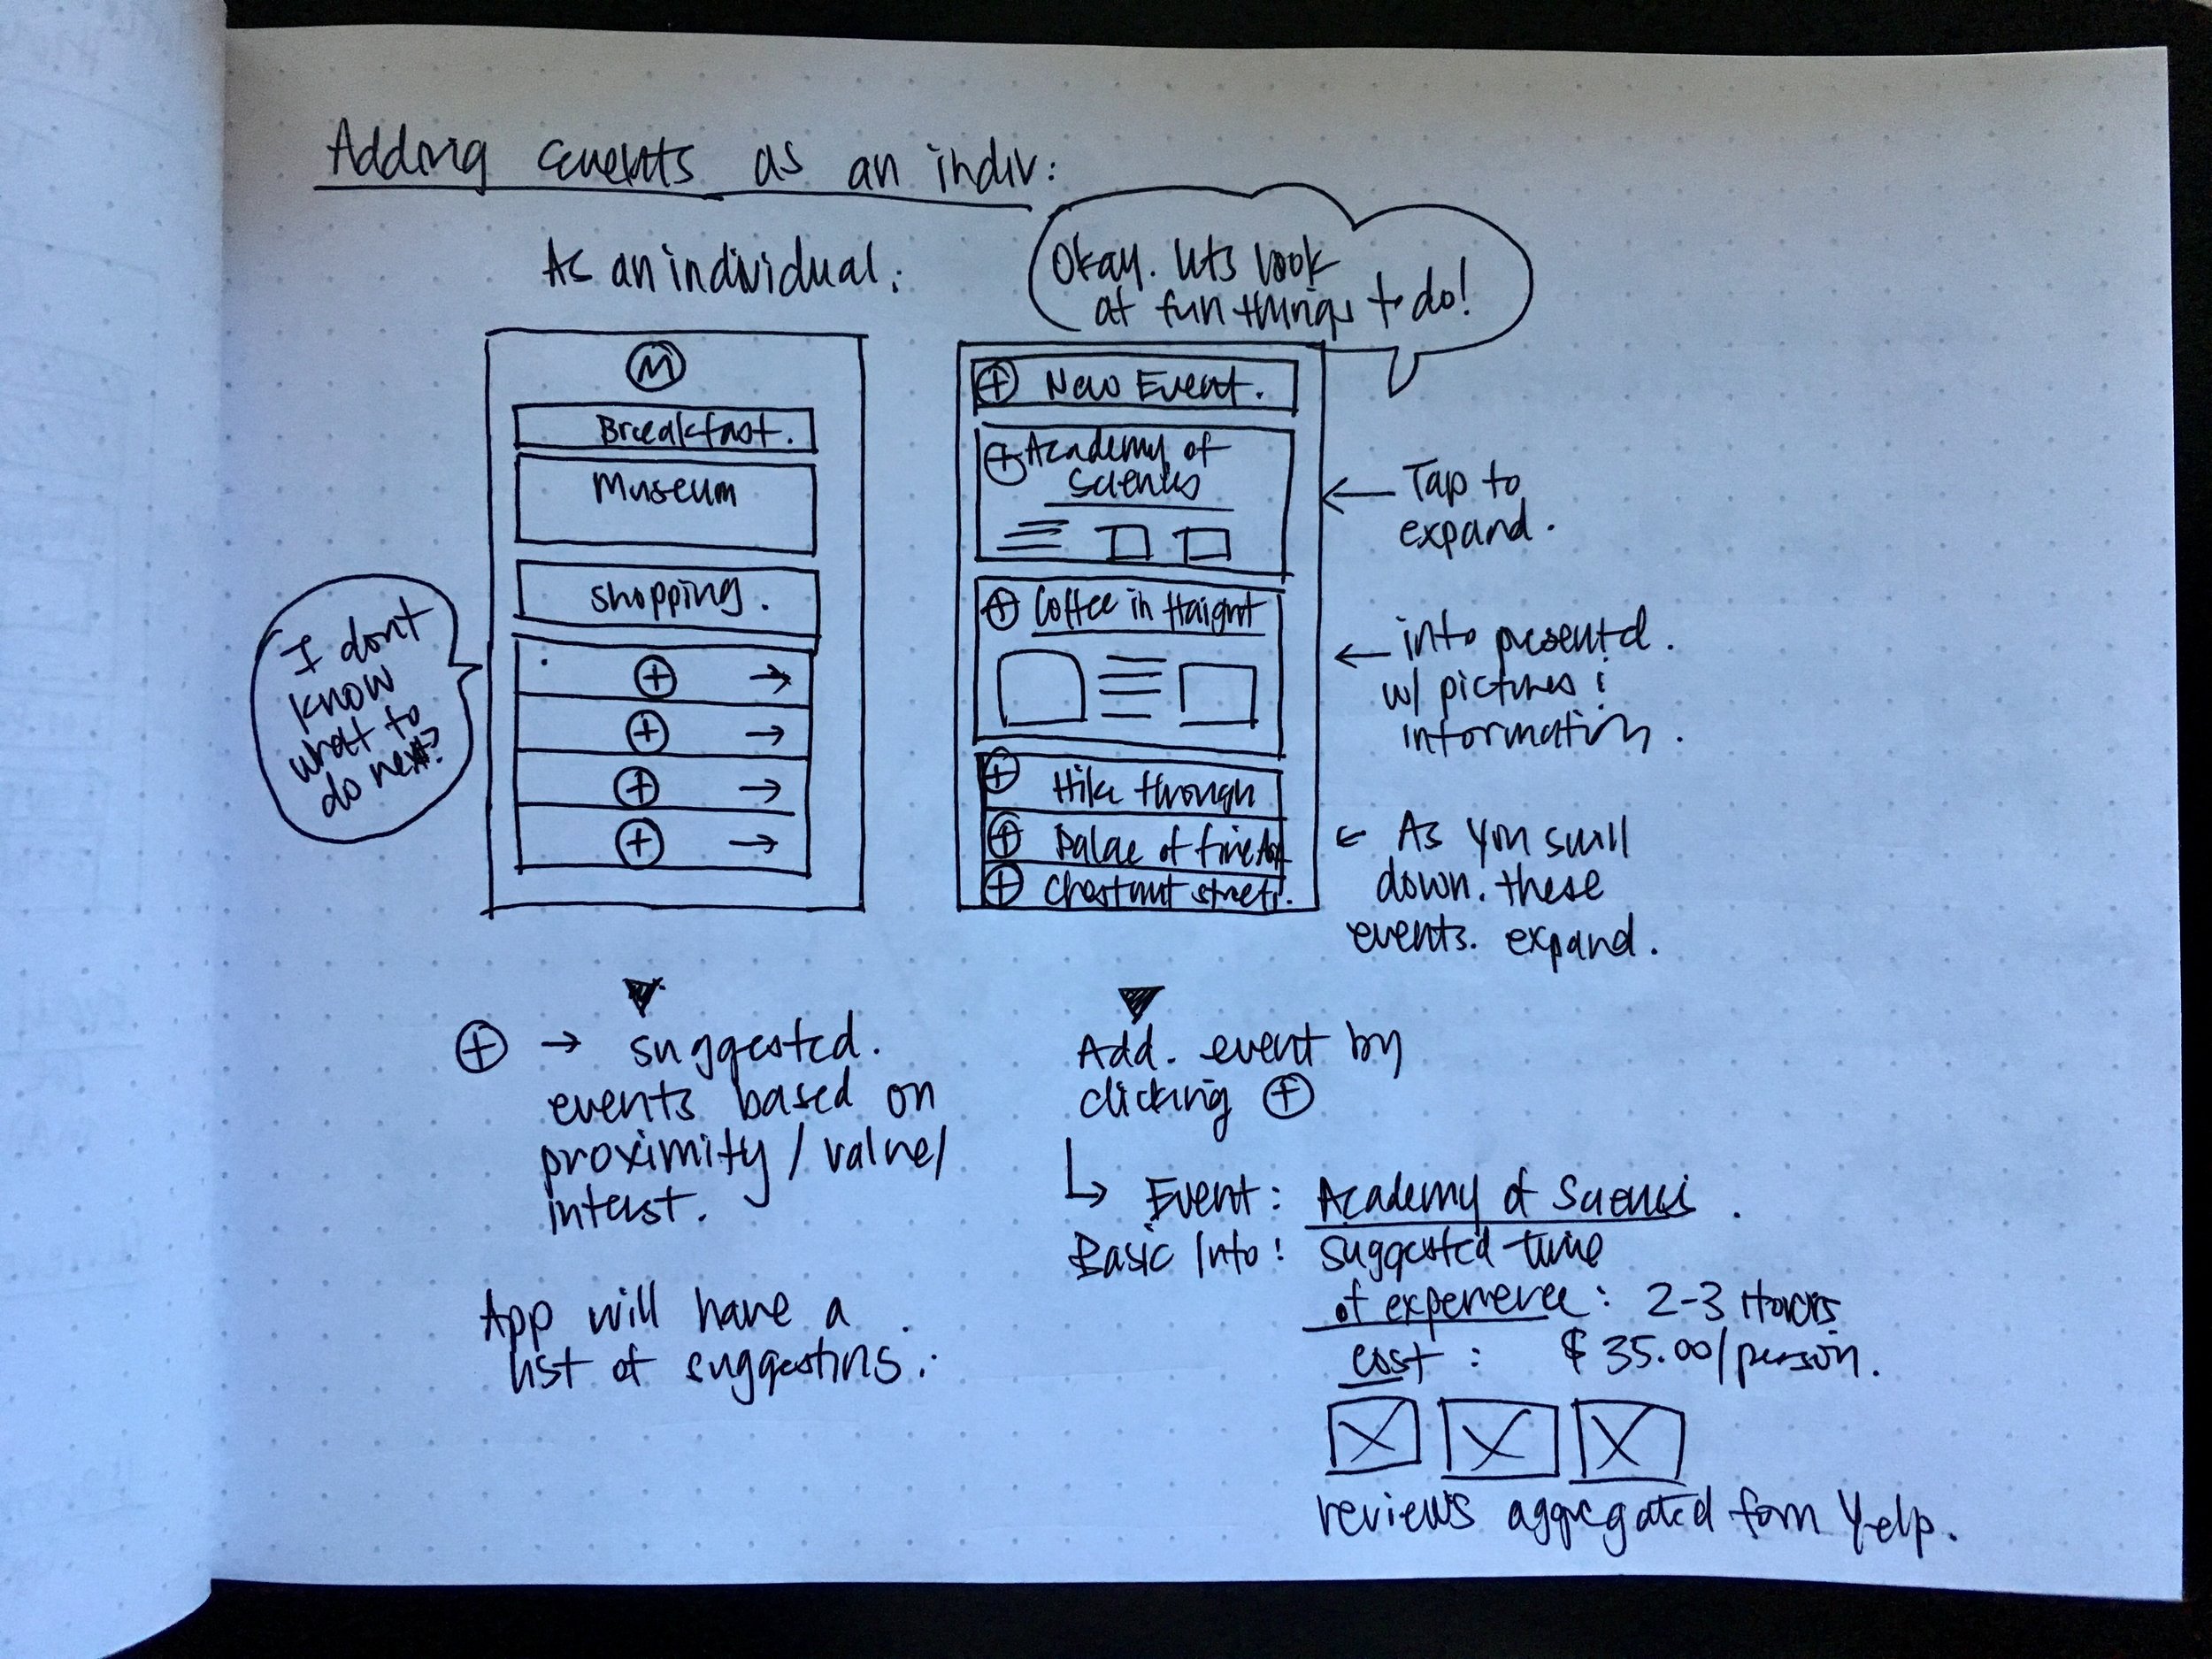 Adding events as an indiv:
As an individual:
Okay. lets look
at fun things to do!
I dont
know
what to
do next?
M
Breakfast.
Museum
Shopping.
+ →
+ →
+ →
+ →
+ New Event.
+ Academy of
Sciences
+ Coffee in Haight
+ Hike through
+ Palace of fine Art
+ Chestnut street.
← Tap to
expand.
← info presentd.
w/ pictures &
information.
← As you scroll
down. these
events. expand.
+ → suggested.
events based on
proximity / value /
interest.
App will have a
list of suggestions.
Add. event by
clicking +
↳ Event: Academy of Sciences.
Basic Info: suggested time
of experience: 2-3 Hours.
cost: $35.00/person.
reviews aggregated from Yelp.